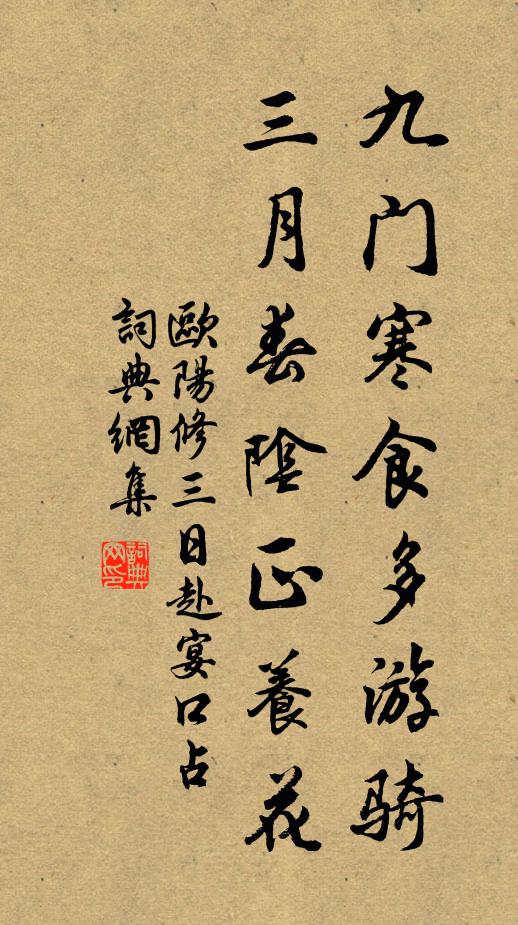 九门寒食多游骑
三月春陰正養花
歐陽修三日赴宴口占
詞典網集
詞典网印